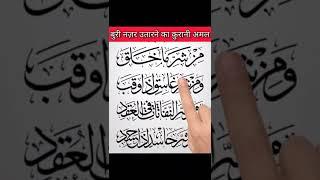 बुरी नज़र उतारने का क़ुरानी अमल
مِنْ شَرِّ مَا خَلَقَ
وَمِنْ شَرِّ غَاسِقٍ إِذَا وَقَبَ
شَرِّ النَّفَّاثَاتِ فِي الْعُقَدِ
شَرِّ حَاسِدٍ إِذَا حَسَدَ